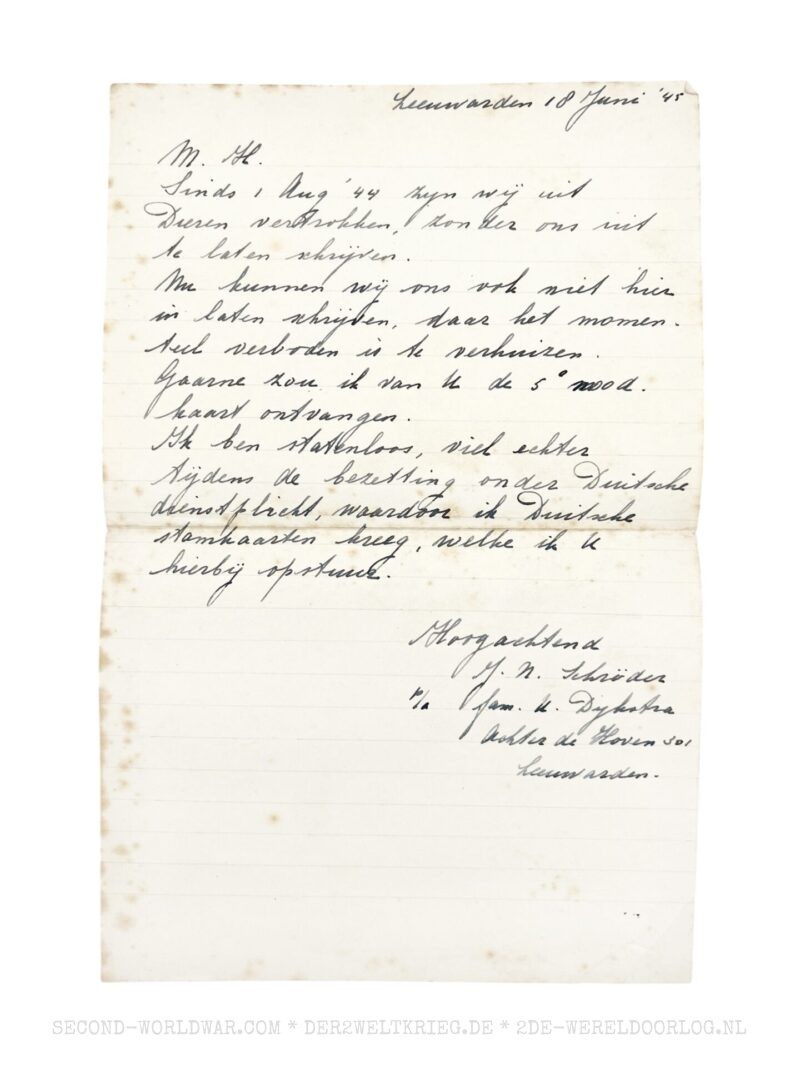 Leeuwarden 18 Juni '45
M. H.
Sinds 1 Aug '44 zyn wij uit
Dieren vertrokken, zonder ons uit
te laten schrijven.
Nu kunnen wij ons ook niet hier
in laten schrijven, daar het momen-
teel verboden is te verhuizen.
Gaarne zou ik van U de 5e nood-
kaart ontvangen.
Ik ben statenloos, viel echter
tijdens de bezetting onder Duitsche
dienstplicht, waardoor ik Duitsche
stamkaarten kreeg, welke ik U
hierbij opstuur.
Hoogachtend
J. N. Schröder
p/a fam. K. Dijkstra
Achter de Hoven 301
Leeuwarden.
SECOND-WORLDWAR.COM * DER2WELTKRIEG.DE * 2DE-WERELDOORLOG.NL